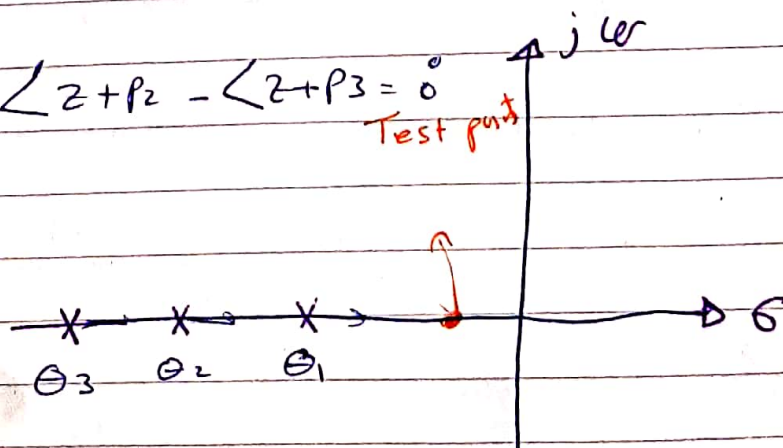 jω
∠z+p2 - ∠z+p3 = 0°
Test point
σ
θ3 θ2 θ1